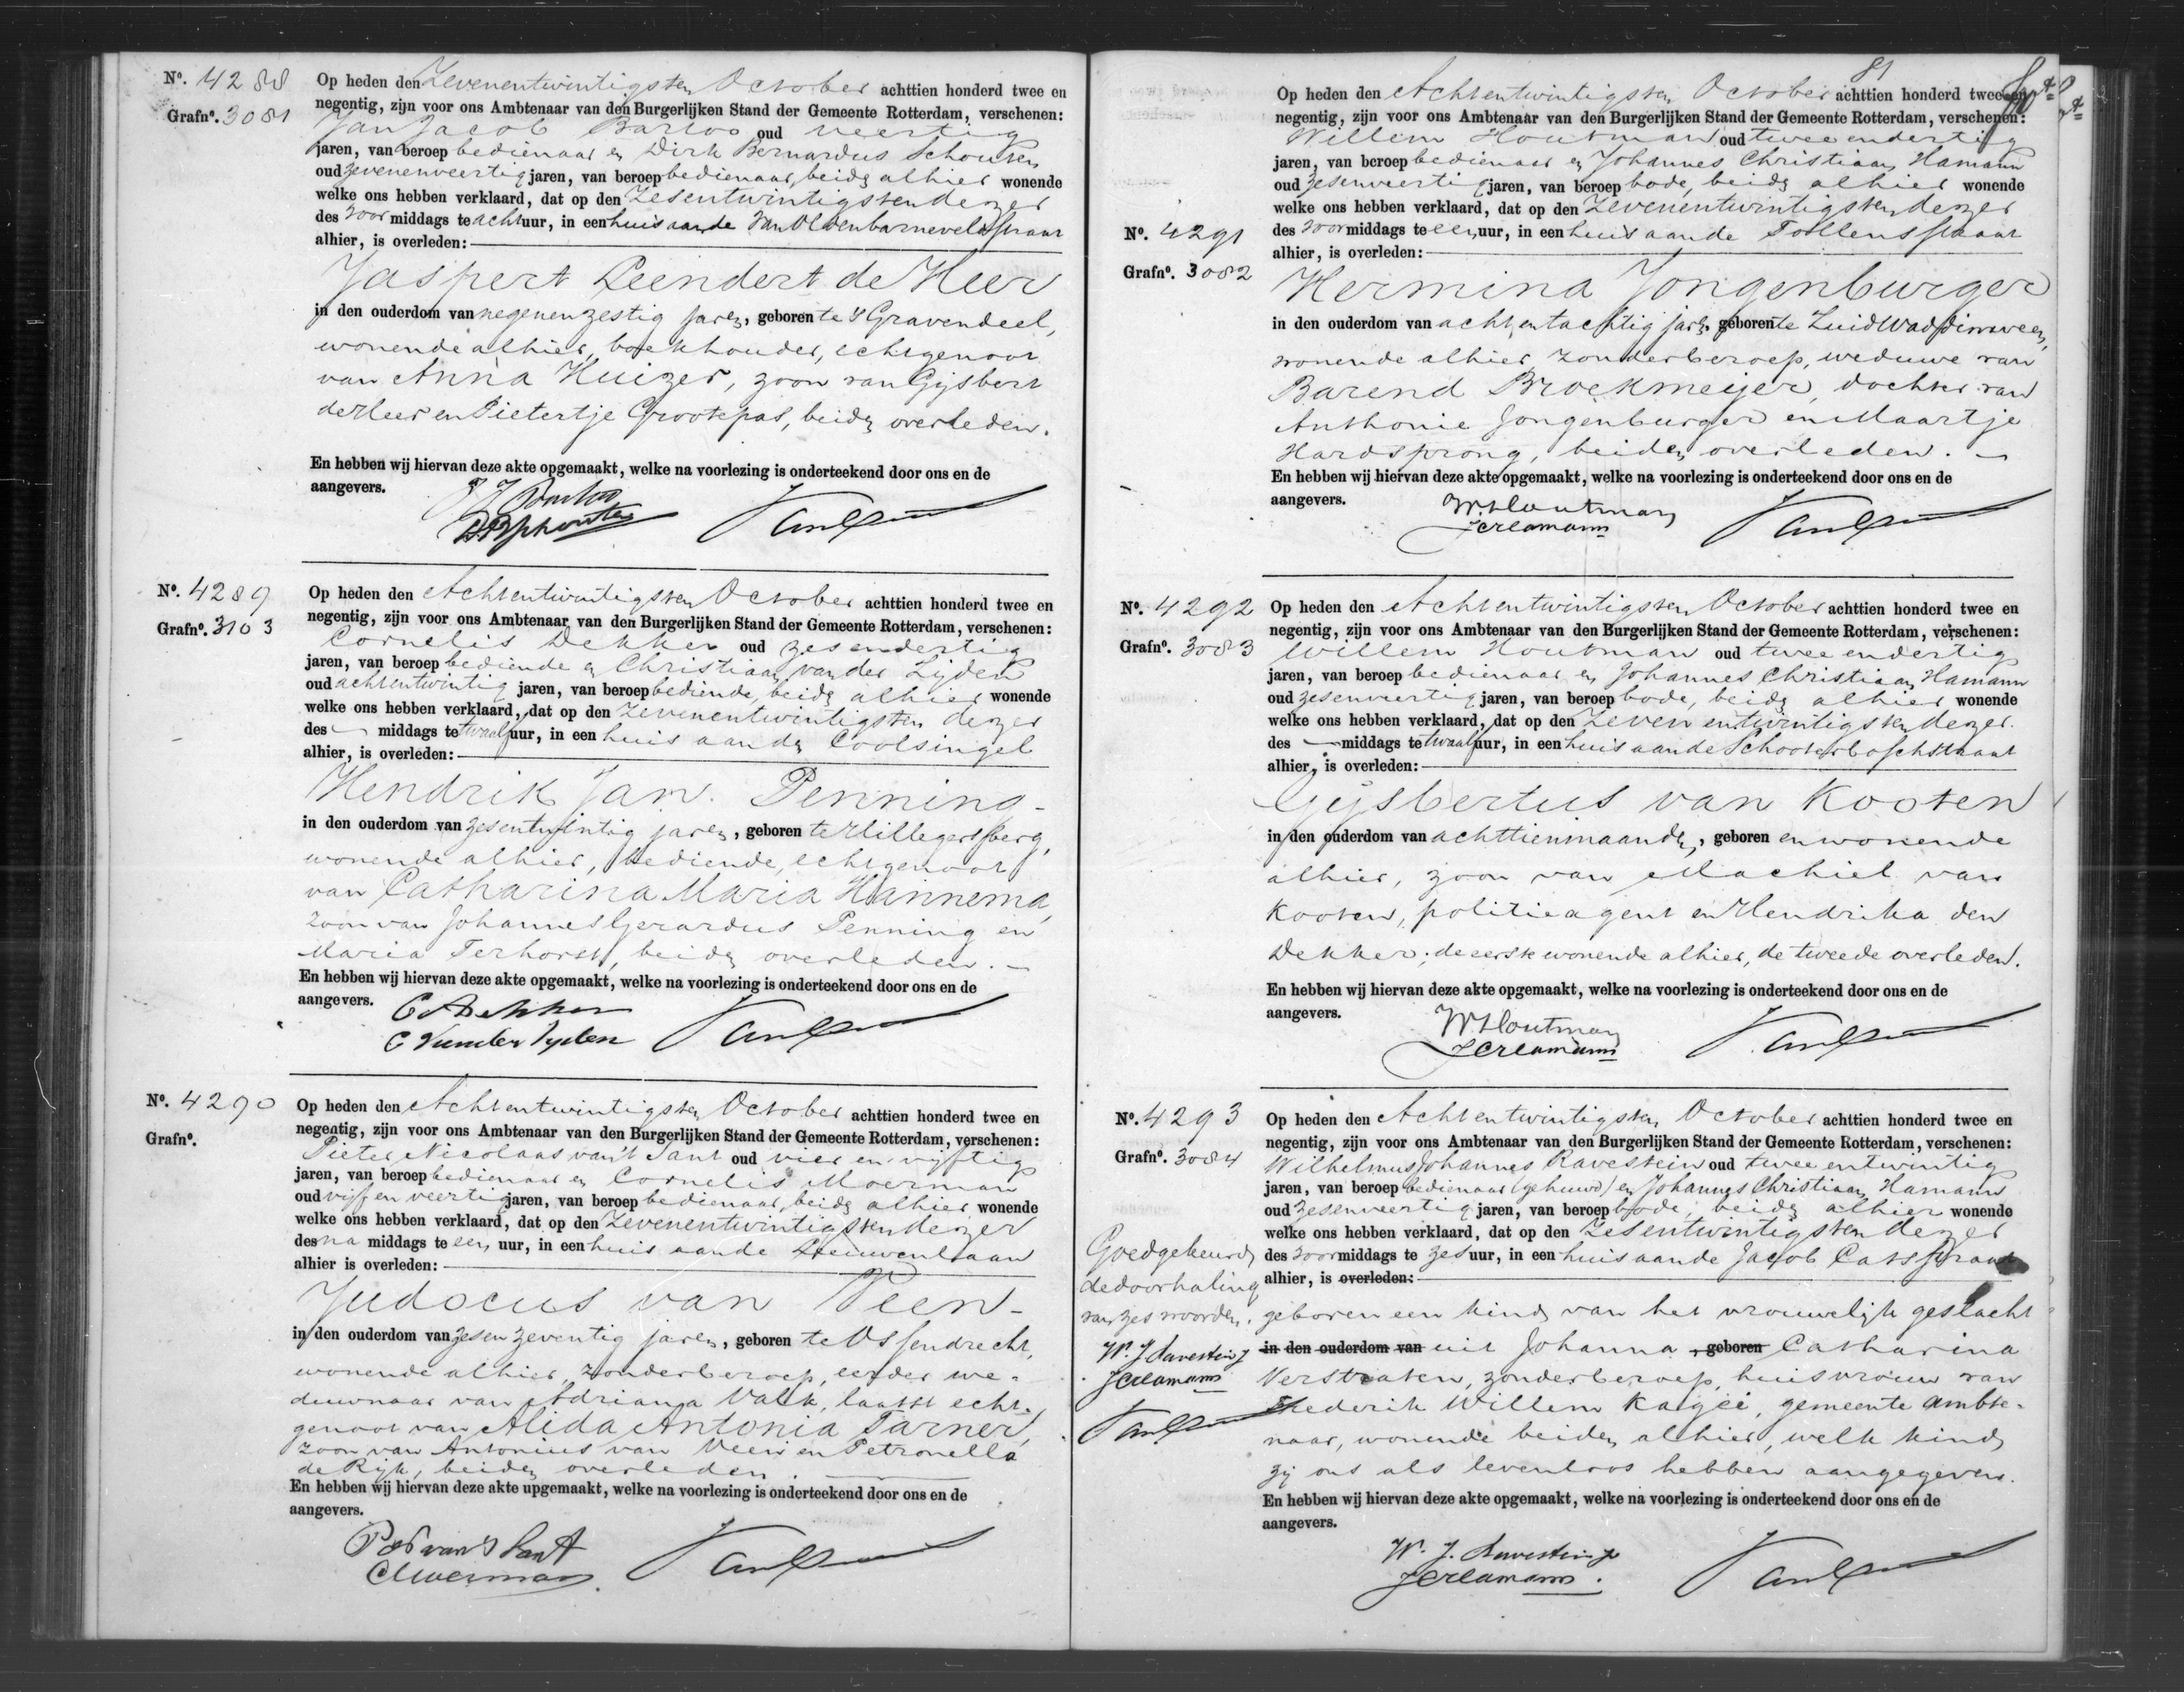 Nº. 4288
Grafnº. 3081
Op heden den Zevenentwintigsten October achttien honderd twee en
negentig, zijn voor ons Ambtenaar van den Burgerlijken Stand der Gemeente Rotterdam, verschenen:
Jan Jacob Bartoo oud veertig
jaren, van beroep bedienaar en Dirk Bernardus Schouten
oud zevenenveertig jaren, van beroep bedienaar, beiden alhier wonende
welke ons hebben verklaard, dat op den Zesentwintigsten dezer
des voormiddags te acht uur, in een huis aan de Van Oldenbarneveldtstraat
alhier, is overleden:
Jaspert Leendert de Heer
in den ouderdom van negenenzestig jaren, geboren te 's Gravendeel,
wonende alhier, boekhouder, echtgenoot
van Anna Huizer, zoon van Gijsbert
de Heer en Pietertje Grootepas, beiden overleden.
En hebben wij hiervan deze akte opgemaakt, welke na voorlezing is onderteekend door ons en de
aangevers.
DBSchouten
Nº. 4289
Grafnº. 3103
Op heden den Achtentwintigsten October achttien honderd twee en
negentig, zijn voor ons Ambtenaar van den Burgerlijken Stand der Gemeente Rotterdam, verschenen:
Cornelis Dekker oud zesendertig
jaren, van beroep bediende en Christiaan van der Lijden
oud achtentwintig jaren, van beroep bediende, beiden alhier wonende
welke ons hebben verklaard, dat op den Zevenentwintigsten dezer
des — middags te twaalf uur, in een huis aan den Coolsingel
alhier, is overleden:
Hendrik Jan Penning
in den ouderdom van zesentwintig jaren, geboren te Hillegersberg,
wonende alhier, bediende, echtgenoot
van Catharina Maria Hannema,
zoon van Johannes Gerardus Penning en
Maria Terhorst, beiden overleden.
En hebben wij hiervan deze akte opgemaakt, welke na voorlezing is onderteekend door ons en de
aangevers.
C Dekker
C van der Lyden
Nº. 4290
Grafnº.
Op heden den Achtentwintigsten October achttien honderd twee en
negentig, zijn voor ons Ambtenaar van den Burgerlijken Stand der Gemeente Rotterdam, verschenen:
Pieter Nicolaas van't Sant oud vier en vijftig
jaren, van beroep bedienaar en Cornelis Moerman
oud vijf en veertig jaren, van beroep bedienaar, beiden alhier wonende
welke ons hebben verklaard, dat op den Zevenentwintigsten dezer
des na middags te een uur, in een huis aan de Leeuwenlaan
alhier is overleden:
Judocus van Veen
in den ouderdom van zesenzeventig jaren, geboren te Ossendrecht,
wonende alhier, zonder beroep, eerder we-
duwnaar van Adriana Valk, laatst echt-
genoot van Alida Antonia Tarner,
zoon van Antonius van Veen en Petronella
de Rijk, beiden overleden.
En hebben wij hiervan deze akte upgemaakt, welke na voorlezing is onderteekend door ons en de
aangevers.
PN van 't Sant
CMoerman
81
Op heden den Achtentwintigsten October achttien honderd twee en
negentig, zijn voor ons Ambtenaar van den Burgerlijken Stand der Gemeente Rotterdam, verschenen:
Willem Houtman oud twee endertig
jaren, van beroep bedienaar en Johannes Christiaan Hamann
oud zesenveertig jaren, van beroep bode, beiden alhier wonende
welke ons hebben verklaard, dat op den Zevenentwintigsten dezer
Nº. 4291
des voormiddags te een uur, in een huis aan de Tollensstraat
alhier, is overleden:
Grafnº. 3082
Hermina Jongenburger
in den ouderdom van achtentachtig jaren, geboren te Zuid Waddinxveen,
wonende alhier, zonder beroep, weduwe van
Barend Broekmeijer, dochter van
Anthonie Jongenburger en Maartje
Hardsprong, beiden overleden.
En hebben wij hiervan deze akte opgemaakt, welke na voorlezing is onderteekend door ons en de
aangevers.
W. Houtman
JCHamann
Nº. 4292
Grafnº. 3083
Op heden den Achtentwintigsten October achttien honderd twee en
negentig, zijn voor ons Ambtenaar van den Burgerlijken Stand der Gemeente Rotterdam, verschenen:
Willem Houtman oud twee endertig
jaren, van beroep bedienaar en Johannes Christiaan Hamann
oud zesenveertig jaren, van beroep bode, beiden alhier wonende
welke ons hebben verklaard, dat op den Zeven entwintigsten dezer
des — middags te twaalf uur, in een huis aan de Schooterboschstraat
alhier, is overleden:
Gijsbertus van Kooten
in den ouderdom van achttien maanden, geboren en wonende
alhier, zoon van Machiel van
Kooten, politieagent en Hendrika den
Dekker; de eerste wonende alhier, de tweede overleden.
En hebben wij hiervan deze akte opgemaakt, welke na voorlezing is onderteekend door ons en de
aangevers.
W Houtman
JCHamann
Nº. 4293
Grafnº. 3084
Op heden den Achtentwintigsten October achttien honderd twee en
negentig, zijn voor ons Ambtenaar van den Burgerlijken Stand der Gemeente Rotterdam, verschenen:
Wilhelmus Johannes Ravestein oud twee entwintig
jaren, van beroep bedienaar (gehuwd) en Johannes Christiaan Hamann
oud zesenveertig jaren, van beroep bode, beiden alhier wonende
welke ons hebben verklaard, dat op den Zesentwintigsten dezer
des voormiddags te zes uur, in een huis aan de Jacob Catsstraat
alhier, is overleden:
geboren een kind van het vrouwelijk geslacht
in den ouderdom van uit Johanna , geboren Catharina
Verstraten, zonder beroep, huisvrouw van
Frederik Willem Kagei, gemeente ambte-
naar, wonende beiden alhier, welk kind
zij ons als levenloos hebben aangegeven.
Goedgekeurd
de doorhaling
van zes woorden.
W. J. Ravestein
JCHamann
En hebben wij hiervan deze akte opgemaakt, welke na voorlezing is onderteekend door ons en de
aangevers.
W. J. Ravestein
JCHamann